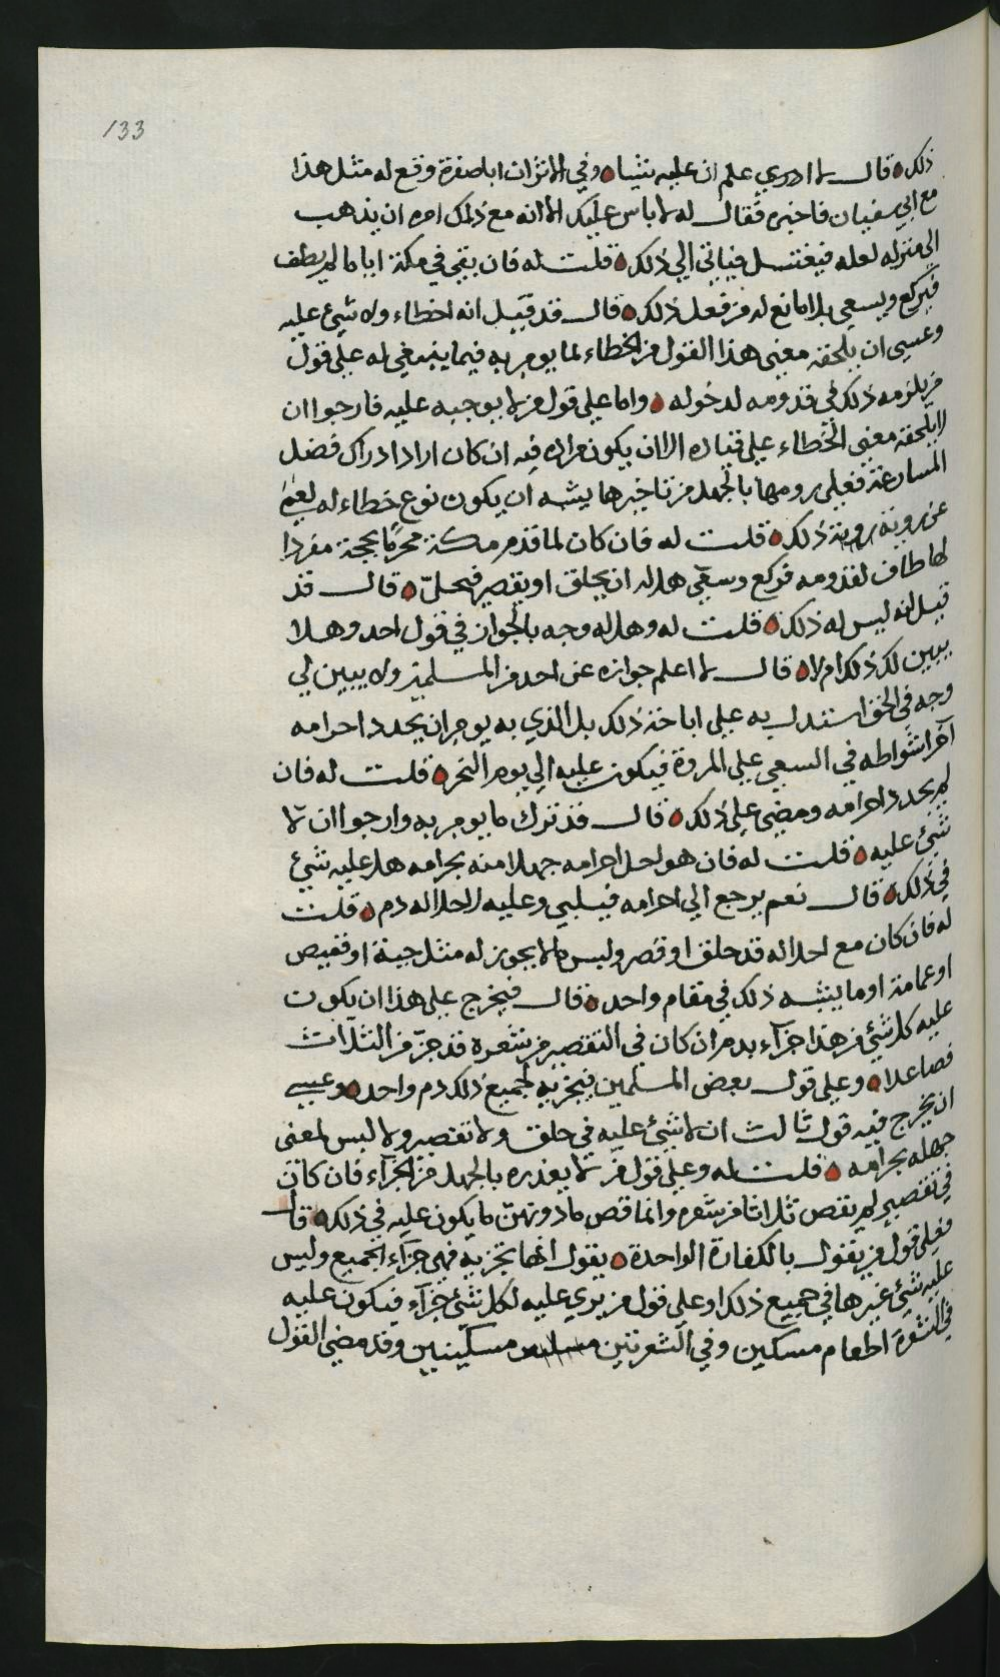 133
ذلك قال لا ادري علم ان عليه شيئا وفي الاثر ان اباصفرة وقع له مثل هذا
مع ابي سفيان فاخبره فقال له لا باس عليك الا انه مع ذلك امره ان يذهب
الى منزله لعله فيغتسل فياتي الي ذلك قلت له فان بقي في مكة اياما لم يطف
فيركع ويسعى بلا مانع له من فعل ذلك قال قد قيل انه اخطاء ولا شيئ عليه
وعسى ان يلحقه معنى هذا القول من الخطاء لما يومر به فيما ينبغي له على قول
من يلزمه ذلك في قدومه لدخوله واما على قول من لا يوجبه عليه فارجوا ان
لا يلحقه معنى الخطاء على قياده الا ان يكون مراده فيه ان كان اراد ادراك فضل
المسارعة فعلى رومها بالجهد من تاخيرها يشبه ان يكون نوع خطاء له لعيه
عن روية روية ذلك قلت له فان كان لما قدم مكة محرما بحجة مفردا
لها طاف لقدومه فركع وسعى هل له ان يحلق او يقصر فيحل قال قد
قيل انه ليس له ذلك قلت له وهل له وجه بالجواز في قول احد وهل
يبين لك ذلك ام لا قال لا اعلم جوازه عن احد من المسلمين ولا يبين لي
وجه في الحق استدل به على اباحة ذلك بل الذي به يومر ان يجدد احرامه
آخر اشواطه في السعي على المروة فيكون عليه الي يوم النحر قلت له فان
لم يجدد احرامه ومضى على ذلك قال قد ترك ما يومر به وارجوا ان لا
شيئ عليه قلت له فان هو احل احرامه جهلا منه بحرامه هل عليه شيئ
في ذلك قال نعم يرجع الي احرامه فيلبي وعليه لاحلاله دم قلت
له فان كان مع احلاله قد حلق او قصر ولبس ما لا يجوز له مثل جبة او قميص
او عمامة او ما يشبه ذلك في مقام واحد قال فيخرج على هذا ان يكون
عليه كل شيئ من هذا جزآء بدم ان كان في التقصير من شعره قد جز من الثلاث
فصاعدا وعلى قول بعض المسلمين فيجزيه لجميع ذلك دم واحد وعسى
ان يخرج فيه قول ثالث ان لا شيئ عليه في حلق ولا تقصير ولا لبس لمعنى
جهله بحرامه قلت له وعلى قول من لا يعذره بالجهل من الجزآء فان كان
في تقصيره لم يقص ثلاثا من شعره وانما قص ما دونهن ما يكون عليه في ذلك قال
فعلى قول من يقول بالكفارة الواحدة يقول انها تجزيه فهي جزآء الجميع وليس
عليه شيئ غيرها في جميع ذلك او على قول من يرى عليه لكل شيئ جزآء فيكون عليه
في الشعرة اطعام مسكين وفي الشعرتين مسكينين وقد مضى القول